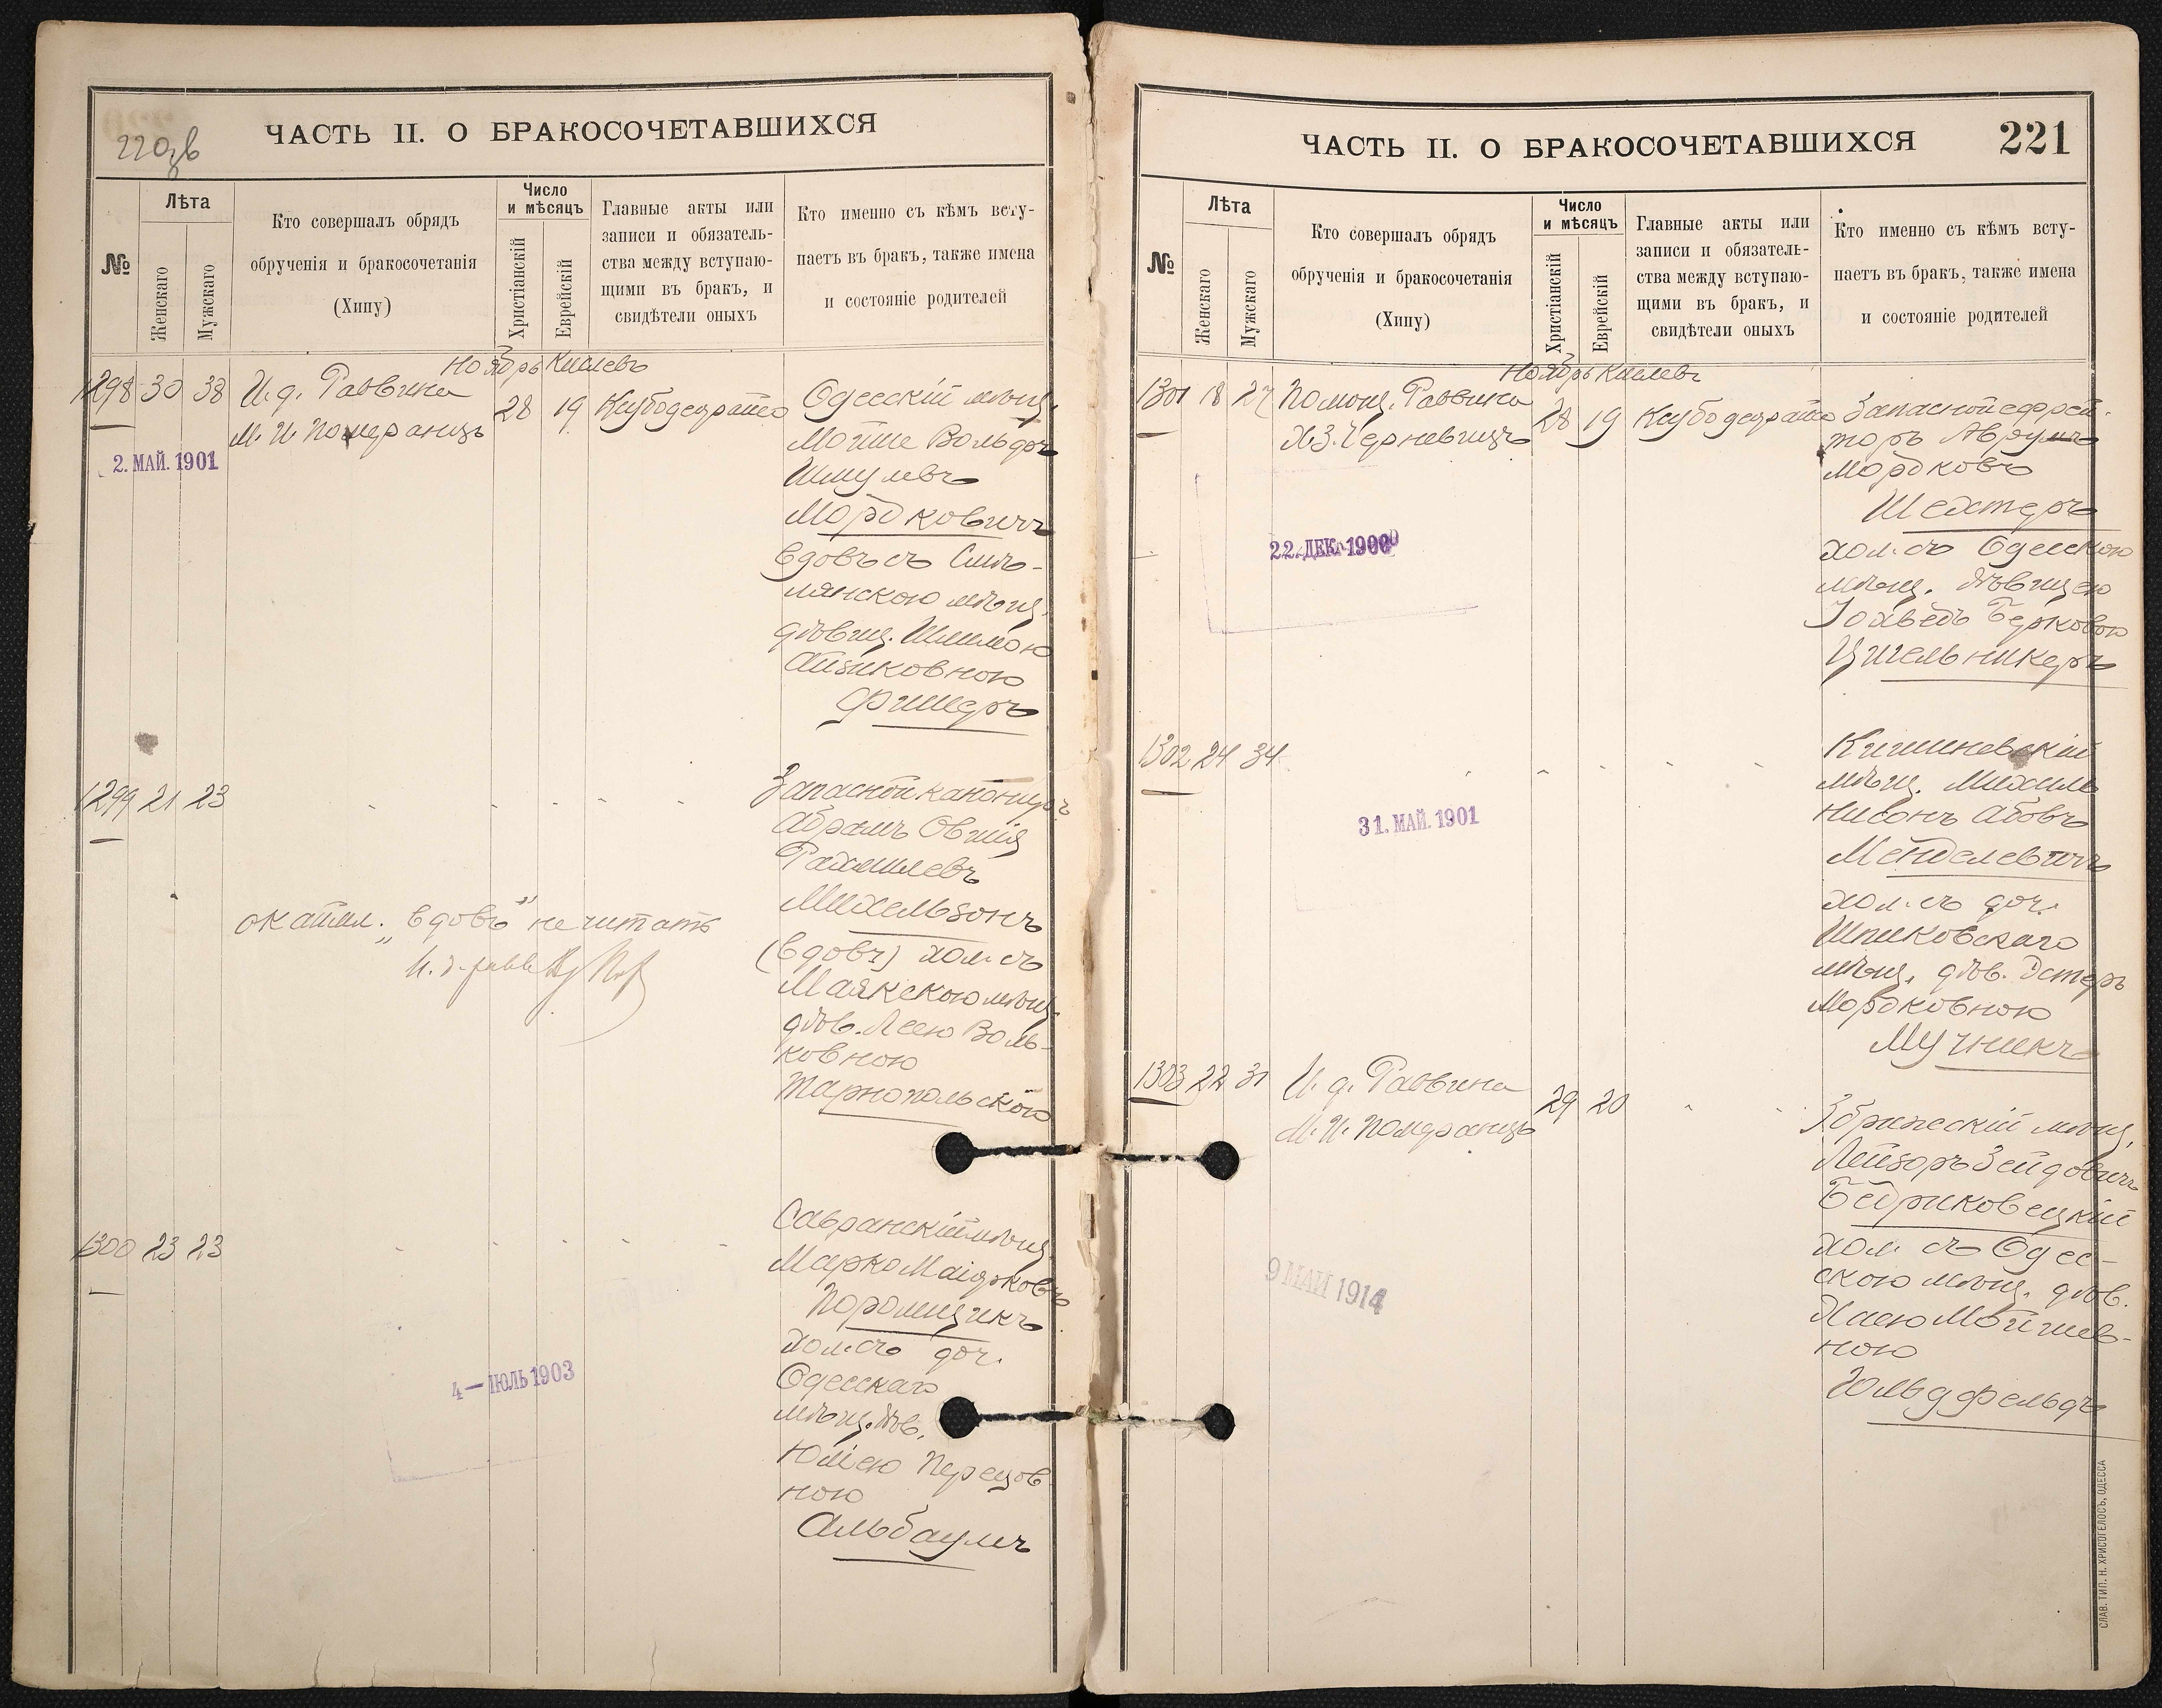 220 зв
ЧАСТЬ II. О БРАКОСОЧЕТАВШИХСЯ
№
Лѣта
Женскаго
Мужскаго
Кто совершалъ обрядъ
обрученія и бракосочетанія
(Хипу)
Число
и мѣсяцъ
Христіанскій
Еврейскій
Главные акты или
записи и обязатель-
ства между вступаю-
щими въ бракъ, и
свидѣтели оныхъ
Кто именно съ кѣмъ всту-
паетъ въ бракъ, также имена
и состояніе родителей
Ноябрь Кислевъ
1298 30 38 И. д. Раввина
М. И. Померанцъ
28 19 Кисубодеурайто
2. МАЙ. 1901
Одесскій мѣщ.
Мойше Вольфъ
Шмулевъ
Мордковичъ
вдовъ съ Смѣ-
лянскою мѣщ.
дѣвиц. Шлимою
Айзиковною
Фишеръ
1299 21 23
Запасной канониръ
Абрамъ Овшія
Рахмилевъ
Михельзонъ
(вдовъ) хол. съ
Маякскою мѣщ.
дѣв. Леею Воль-
ковною
Тарнопольскою
"вдовъ" не читать
И. д. равв.
1300 23 23
Савранскій мѣщ.
Марко Маіорковъ
Поромщикъ
хол. съ доч.
Одесскаго
мѣщ. дѣв.
Юліею Перецов
ною
Альбаумъ
4 — ІЮЛЬ 1903
ЧАСТЬ II. О БРАКОСОЧЕТАВШИХСЯ
221
№
Лѣта
Женскаго
Мужскаго
Кто совершалъ обрядъ
обрученія и бракосочетанія
(Хипу)
Число
и мѣсяцъ
Христіанскій
Еврейскій
Главные акты или
записи и обязатель-
ства между вступаю-
щими въ бракъ, и
свидѣтели оныхъ
Кто именно съ кѣмъ всту-
паетъ въ бракъ, также имена
и состояніе родителей
Ноябрь Кислевъ
1301 18 27 Помощ. Раввина
Х. З. Черневицъ
28 19 Кисубодеурайто
22. ДЕК. 1900
Запасной ефрей-
торъ Аврумъ
Мордковъ
Шехтеръ
хол. съ Одесскою
мѣщ. дѣвицею
Іохведъ Берковою
Цигельникеръ
1302 24 34
31. МАЙ. 1901
Кишиневскій
мѣщ. Михель
Нисонъ Абовъ
Менделевичъ
хол. съ доч.
Шпиковскаго
мѣщ. дѣв. Эстеръ
Мордковною
Мучникъ
1303 22 31 И. д. Раввина
М. И. Померанцъ
29 20
9 МАЙ 1914
Збрижскій мѣщ.
Лейзоръ Зейдовичъ
Бедриковецкій
хол. съ Одес-
скою мѣщ. дѣв.
Хаею Мойшев-
ною
Гольдфельдъ
СЛАВ. ТИП. Н. ХРИСОГЕЛОСЪ, ОДЕССА